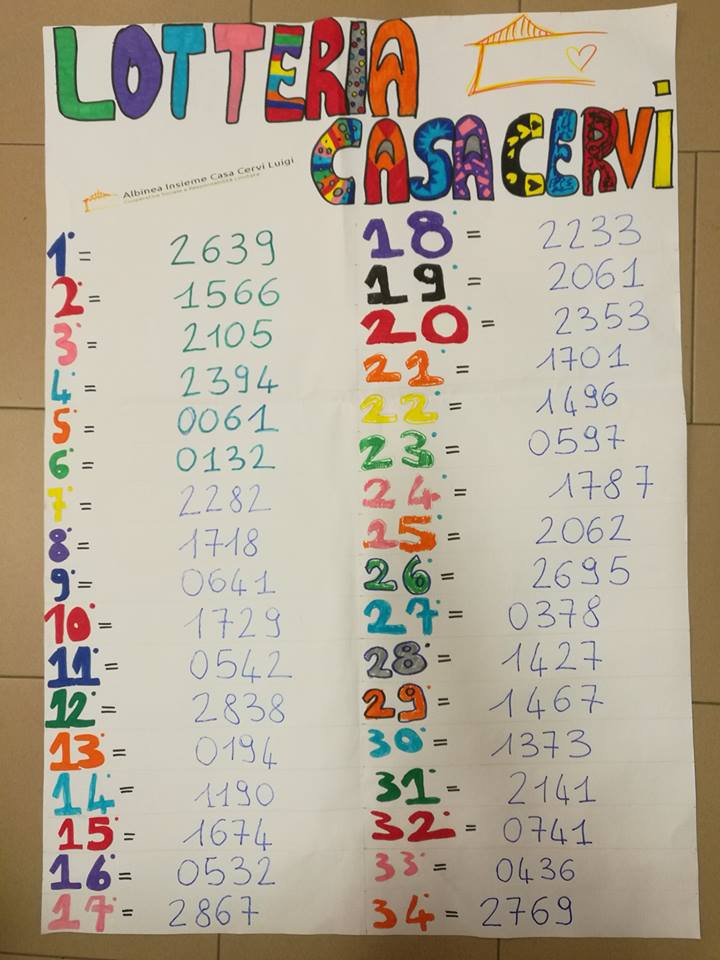 LOTTERIA
CASA CERVI
Albinea Insieme Casa Cervi Luigi
Cooperativa Sociale a Responsabilità Limitata
1° = 2639
2° = 1566
3° = 2105
4° = 2394
5° = 0061
6° = 0132
7° = 2282
8° = 1718
9° = 0641
10° = 1729
11° = 0542
12° = 2838
13° = 0194
14° = 1190
15° = 1674
16° = 0532
17° = 2867
18° = 2233
19° = 2061
20° = 2353
21° = 1701
22° = 1496
23° = 0597
24° = 1787
25° = 2062
26° = 2695
27° = 0378
28° = 1427
29° = 1467
30° = 1373
31° = 2141
32° = 0741
33° = 0436
34° = 2769